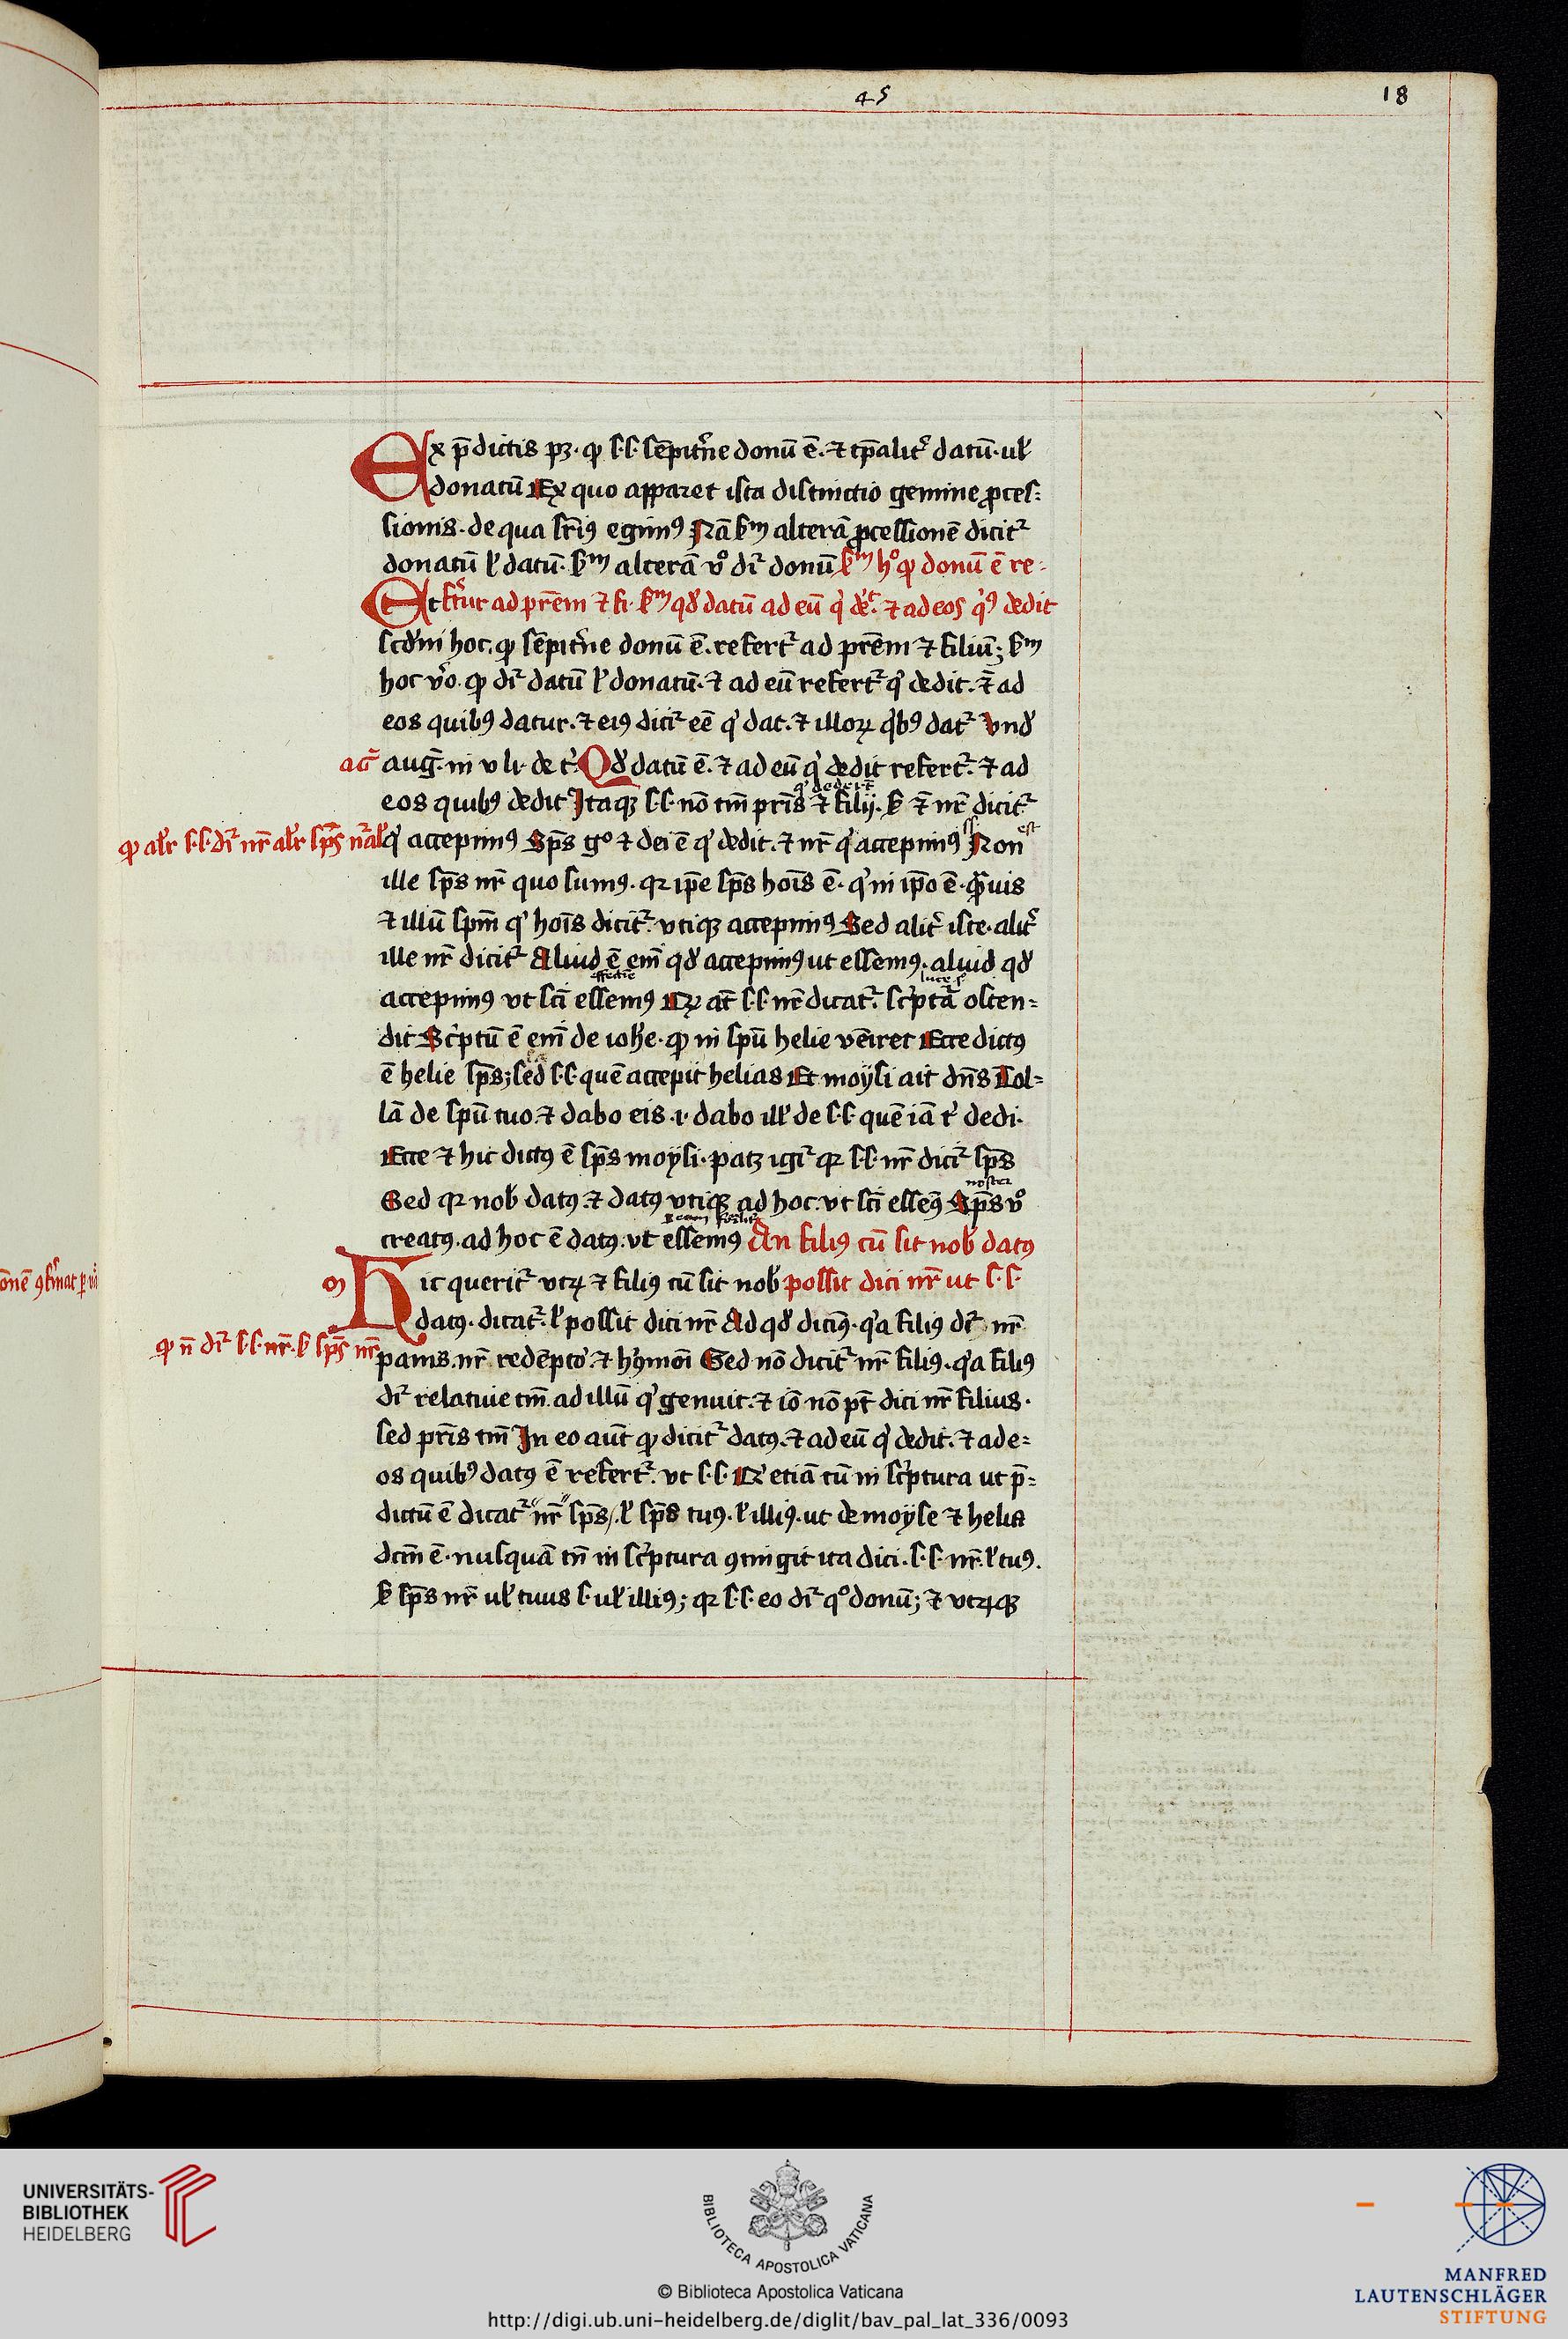 45
18
Ex p̄dictis pꝫ· ꝙ ſ·ſ· ſēpit̾ne donū ē· ⁊ tp̄alit̾ datū· ul̕
donatū Ex quo apparet iſta diſtinctio gemine ꝓceſ⸗
ſionis· de qua ſr̄iꝰ egimꝰ Nā ẜm alterā ꝓceſſionē dicit᷑
donatū ł datū· ẜm alterā v̊o dr̄ donū ẜm hͦ ꝙ donū ē re⸗
Et fertur ad prēm ⁊ fi· ẜm qd̕ datū ad eū q̕ de̕t ⁊ ad eos q̕bꝰ dedit
ſcd̕m hoc· ꝙ ſēpit̾ne donū ē· refert᷑ ad prēm ⁊ filiū; ẜm
hoc v̊o· ꝙ dr̄ datū ł donatū· ⁊ ad eū refert᷑ q̕ dedit· ⁊ ad
eos quibꝰ datur· ⁊ eiꝰ dicit᷑ eē q̕ dat· ⁊ illoꝝ q̕bꝰ dat᷑ Vnd̕
aḡ
aug̅· in v li· de t̕· Qd̕ datū ē· ⁊ ad eū q̕ dedit refert᷑· ⁊ ad
q̕ dederūt
eos quibꝰ dedit Itaqꝫ ſ·ſ· nō tm̄ pr̄is ⁊ filij· ẜ ⁊ nr̄ dicit᷑
ꝙ al̕r ſ·ſ· dr̄ nr̄ al̕r ſp̄s nr̄
ſſ· est
q̕ accepimꝰ Sp̄s gͦ ⁊ dei ē q̕ dedit· ⁊ nr̄ q̕ accepimꝰ Non
ille ſp̄s nr̄ quo ſumꝰ· qꝛ ip̄e ſp̄s hoīs ē· q̕ in ip̄o ē· q̄uis
⁊ illū ſpm̄ q̕ hoīs dicit᷑ vtiqꝫ accepimꝰ Sed alit̾ iſte· alit̾
ille nr̄ dicit᷑ Aliud ē em̄ qd̕ accepimꝰ ut eſſemꝰ· aliud qd̕
accepimꝰ vt ſcī eſſemꝰ Qꝛ at̄ ſ·ſ· nr̄ dicat᷑· ſc̕ptā oſten⸗
dit Sc̕ptū ē em̄ de ioh̄e· ꝙ in ſpū helie vēiret Ecce dictꝰ
ē helie ſp̄s; ſed ſ·ſ· quē accepit helias Et moyſi ait dn̄s Tol⸗
lā de ſpū tuo· ⁊ dabo eis ·i· dabo ill̕ de ſ·ſ· quē iā t̕ dedi·
Ecce ⁊ hic dictꝰ ē ſp̄s moyſi· patꝫ igit᷑ qꝛ ſ·ſ· nr̄ dicit᷑ ſp̄s
noster
Sed qꝛ nob̕ datꝰ· ⁊ datꝰ vtiqꝫ ad hoc· vt ſcī eſſemꝰ Sp̄s v̊o
creatꝰ· ad hoc ē datꝰ· vt eſſemꝰ An filiꝰ cū ſit nob̕ datꝰ
Hic querit᷑ vtꝝ ⁊ filiꝰ cū ſit nob̕ poſſit dici nr̄ ut ſ·ſ·
datꝰ· dicat᷑· ł poſſit dici nr̄ Ad qd̕ dicimꝰ· q̕a filiꝰ dr̄ nr̄
ꝙ n̄ dr̄ ſ·ſ· nr̄· ẜ ſp̄s nr̄
panis· nr̄ redēpto̕· ⁊ hꝰmoi Sed nō dicit᷑ nr̄ filiꝰ· q̕a filiꝰ
dr̄ relatiue tm̄· ad illū q̕ genuit· ⁊ iō nō pt̄ dici nr̄ filius·
ſed pr̄is tm̄ In eo aūt ꝙ dicit᷑ datꝰ· ⁊ ad eū q̕ dedit· ⁊ ad e⸗
os quibꝰ datꝰ ē refert᷑· vt ſ·ſ· Qi etiā cū in ſc̕ptura ut p̄⸗
dictū ē dicat᷑ nr̄ ſp̄s· ł ſp̄s tuꝰ· ł illiꝰ· ut de moyſe ⁊ helia
dcm̄ ē· nuſquā tn̄ in ſc̕ptura ꝯtingit ita dici· ſ·ſ· nr̄· ł tuꝰ·
ẜ ſp̄s nr̄ ul̕ tuus ſ· ul̕ illiꝰ; qꝛ ſ·ſ· eo dr̄ qͦ donū; ⁊ vtꝝqꝫ
UNIVERSITÄTS-
BIBLIOTHEK
HEIDELBERG
BIBLIOTECA APOSTOLICA VATICANA
© Biblioteca Apostolica Vaticana
http://digi.ub.uni-heidelberg.de/diglit/bav_pal_lat_336/0093
MANFRED
LAUTENSCHLÄGER
STIFTUNG